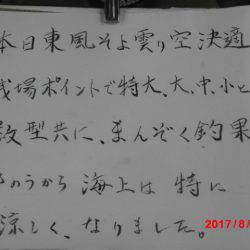 本日東風そよ曇り空決適
戦場ポイントで特大、大、中、小と
数型共に、まんぞく釣果
きのうから海上は特に
涼しく、なりました。
2017/8/